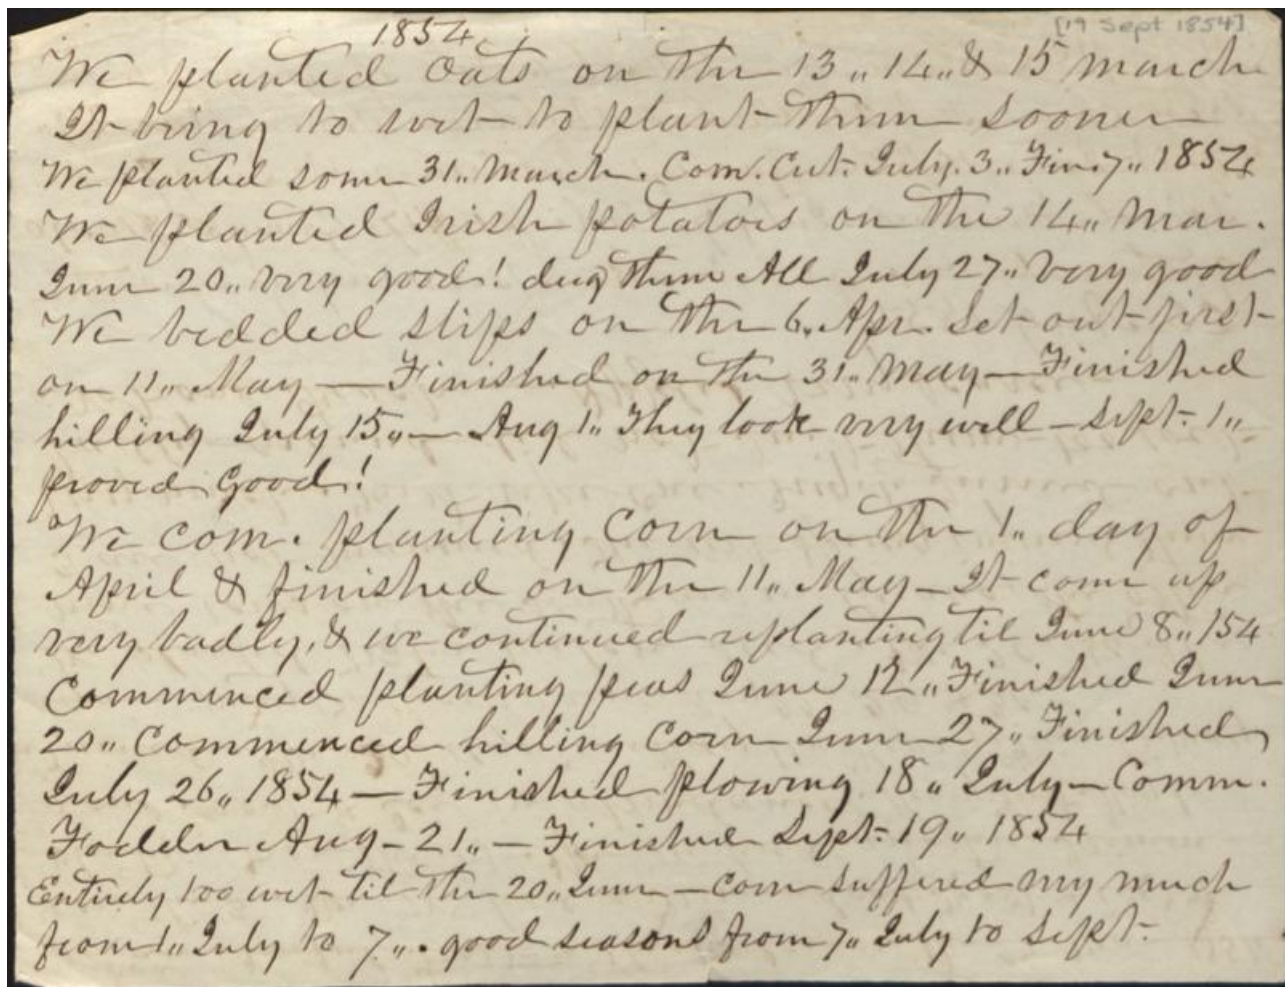 1854
[19 Sept 1854]
We planted Oats on the 13,, 14,, & 15 march
It being to wet to plant them sooner
We planted some 31,, March. Com. Cut. July. 3,, Fin. 7,, 1854
We planted Irish potatoes on the 14,, Mar.
June 20,, very good! dug them All July 27,, very good
We bedded slips on the 6,, Apr. Set out first
on 11,, May — Finished on the 31,, May — Finished
hilling July 15,, — Aug 1,, They look very well — Sept. 1,,
proved good!
We com. planting Corn on the 1,, day of
April & finished on the 11,, May — It come up
very badly, & we continued replanting til June 8,, 154
Commenced planting peas June 12,, Finished June
20,, Commenced hilling Corn June 27,, Finished
July 26,, 1854 — Finished plowing 18,, July — Comm.
Fodder Aug — 21,, — Finished Sept. 19,, 1854
Entirely too wet til the 20,, June — corn suffered very much
from 1,, July to 7,,. good seasons from 7,, July to Sept.